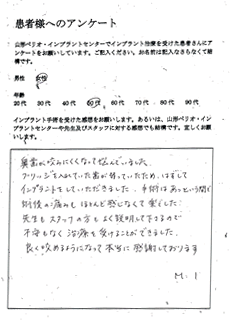 患者様へのアンケート
山形ペリオ・インプラントセンターでインプラント治療を受けた患者さんにアンケートをお願いしています。ご記入ください。お名前は記入なさらなくて結構です。
男性 女性
年齢
20代 30代 40代 50代 60代 70代 80代 90代
インプラント手術を受けた感想をお願いします。あるいは、山形ペリオ・インプラントセンターや先生及びスタッフに対する感想でも結構です。宜しくお願いします。
奥歯が咬みにくくなって悩んでいました。
ブリッジを入れていた歯が弱っていたため、はずして
インプラントをしていただきました。手術はあっという間で
術後の痛みもほとんど感じなくて楽でした。
先生もスタッフの方もよく説明して下さるので
不安もなく治療を受けることができました。
良く咬めるようになって本当に感謝しております
M. I